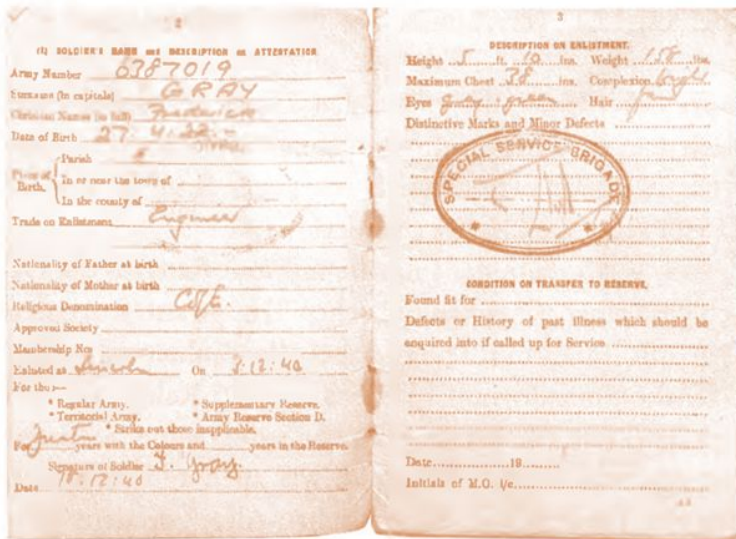 2
(1) SOLDIER'S NAME and DESCRIPTION on ATTESTATION.
Army Number 6387019
Surname (in capitals) GRAY
Christian Names (in full) Frederick
Date of Birth 27. 4. 22.
Place of Birth.
Parish
In or near the town of
In the county of
Trade on Enlistment Engineer
Nationality of Father at birth
Nationality of Mother at birth
Religious Denomination C of E.
Approved Society
Membership No.
Enlisted at Lincoln On 5.12.40
For the :—
* Regular Army. * Supplementary Reserve.
* Territorial Army. * Army Reserve Section D.
* Strike out those inapplicable.
For years with the Colours and years in the Reserve.
Signature of Soldier F. Gray.
Date 12:40
3
DESCRIPTION ON ENLISTMENT.
Height 5 ft. 10 ins. Weight 158 lbs.
Maximum Chest 38 ins. Complexion
Eyes green Hair
Distinctive Marks and Minor Defects
SPECIAL SERVICE BRIGADE
CONDITION ON TRANSFER TO RESERVE.
Found fit for
Defects or History of past illness which should be
enquired into if called up for Service
Date 19
Initials of M.O. i/c.